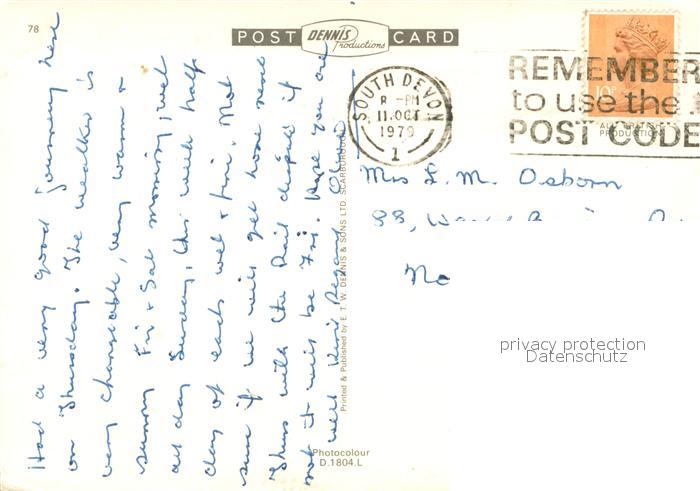 78
POST DENNIS Productions CARD
Had a very good journey here
on Thursday. The weather is
very changeable, very warm &
sunny Fri & Sat morning, wet
all day Sunday, this week half
day of each wet & fine. Not
sure if we will get home next
Thurs with the Rail dispute if
not it will be Fri. Hope you are
well Kind Regards
Printed & Published by E. T. W. DENNIS & SONS LTD. SCARBOROUGH
Photocolour
D.1804.L
SOUTH DEVON
8 -PM
11.OCT
1979
1
REMEMBER
to use the
POST CODE
10P
Mrs L. M. Osborn
88,
No
privacy protection
Datenschutz